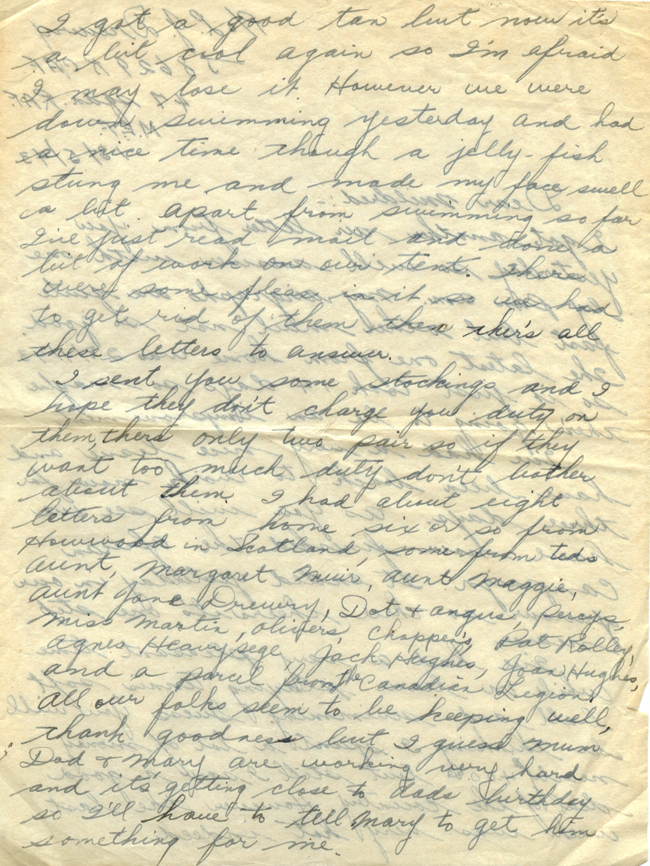 I got a good tan but now it's
a bit cool again so I'm afraid
I may lose it However we were
down swimming yesterday and had
a nice time though a jelly-fish
stung me and made my face swell
a bit. apart from swimming so far
I've just read mail and done a
bit of work on our tent. There
were some fleas in it so we had
to get rid of them then ther's all
these letters to answer.
I sent you some stockings and I
hope they don't charge you duty on
them, there only two pair so if they
want too much duty don't bother
about them. I had about eight
letters from home six or so from
Howwood in Scotland, some from teds
aunt, Margaret Muir, Aunt Maggie,
Aunt Jane Drewry, Dot + Angus, Percys,
Miss Martin, Olivers, Chappers, Pat Rolley,
Agnes Heavysege, Jack Hughes, Joan Hughes,
and a parcel from the Canadian Legion
All our folks seem to be keeping well,
thank goodness but I guess Mum
Dad & Mary are working very hard
and it's getting close to dads birthday
so I'll have to tell Mary to get him
something for me.